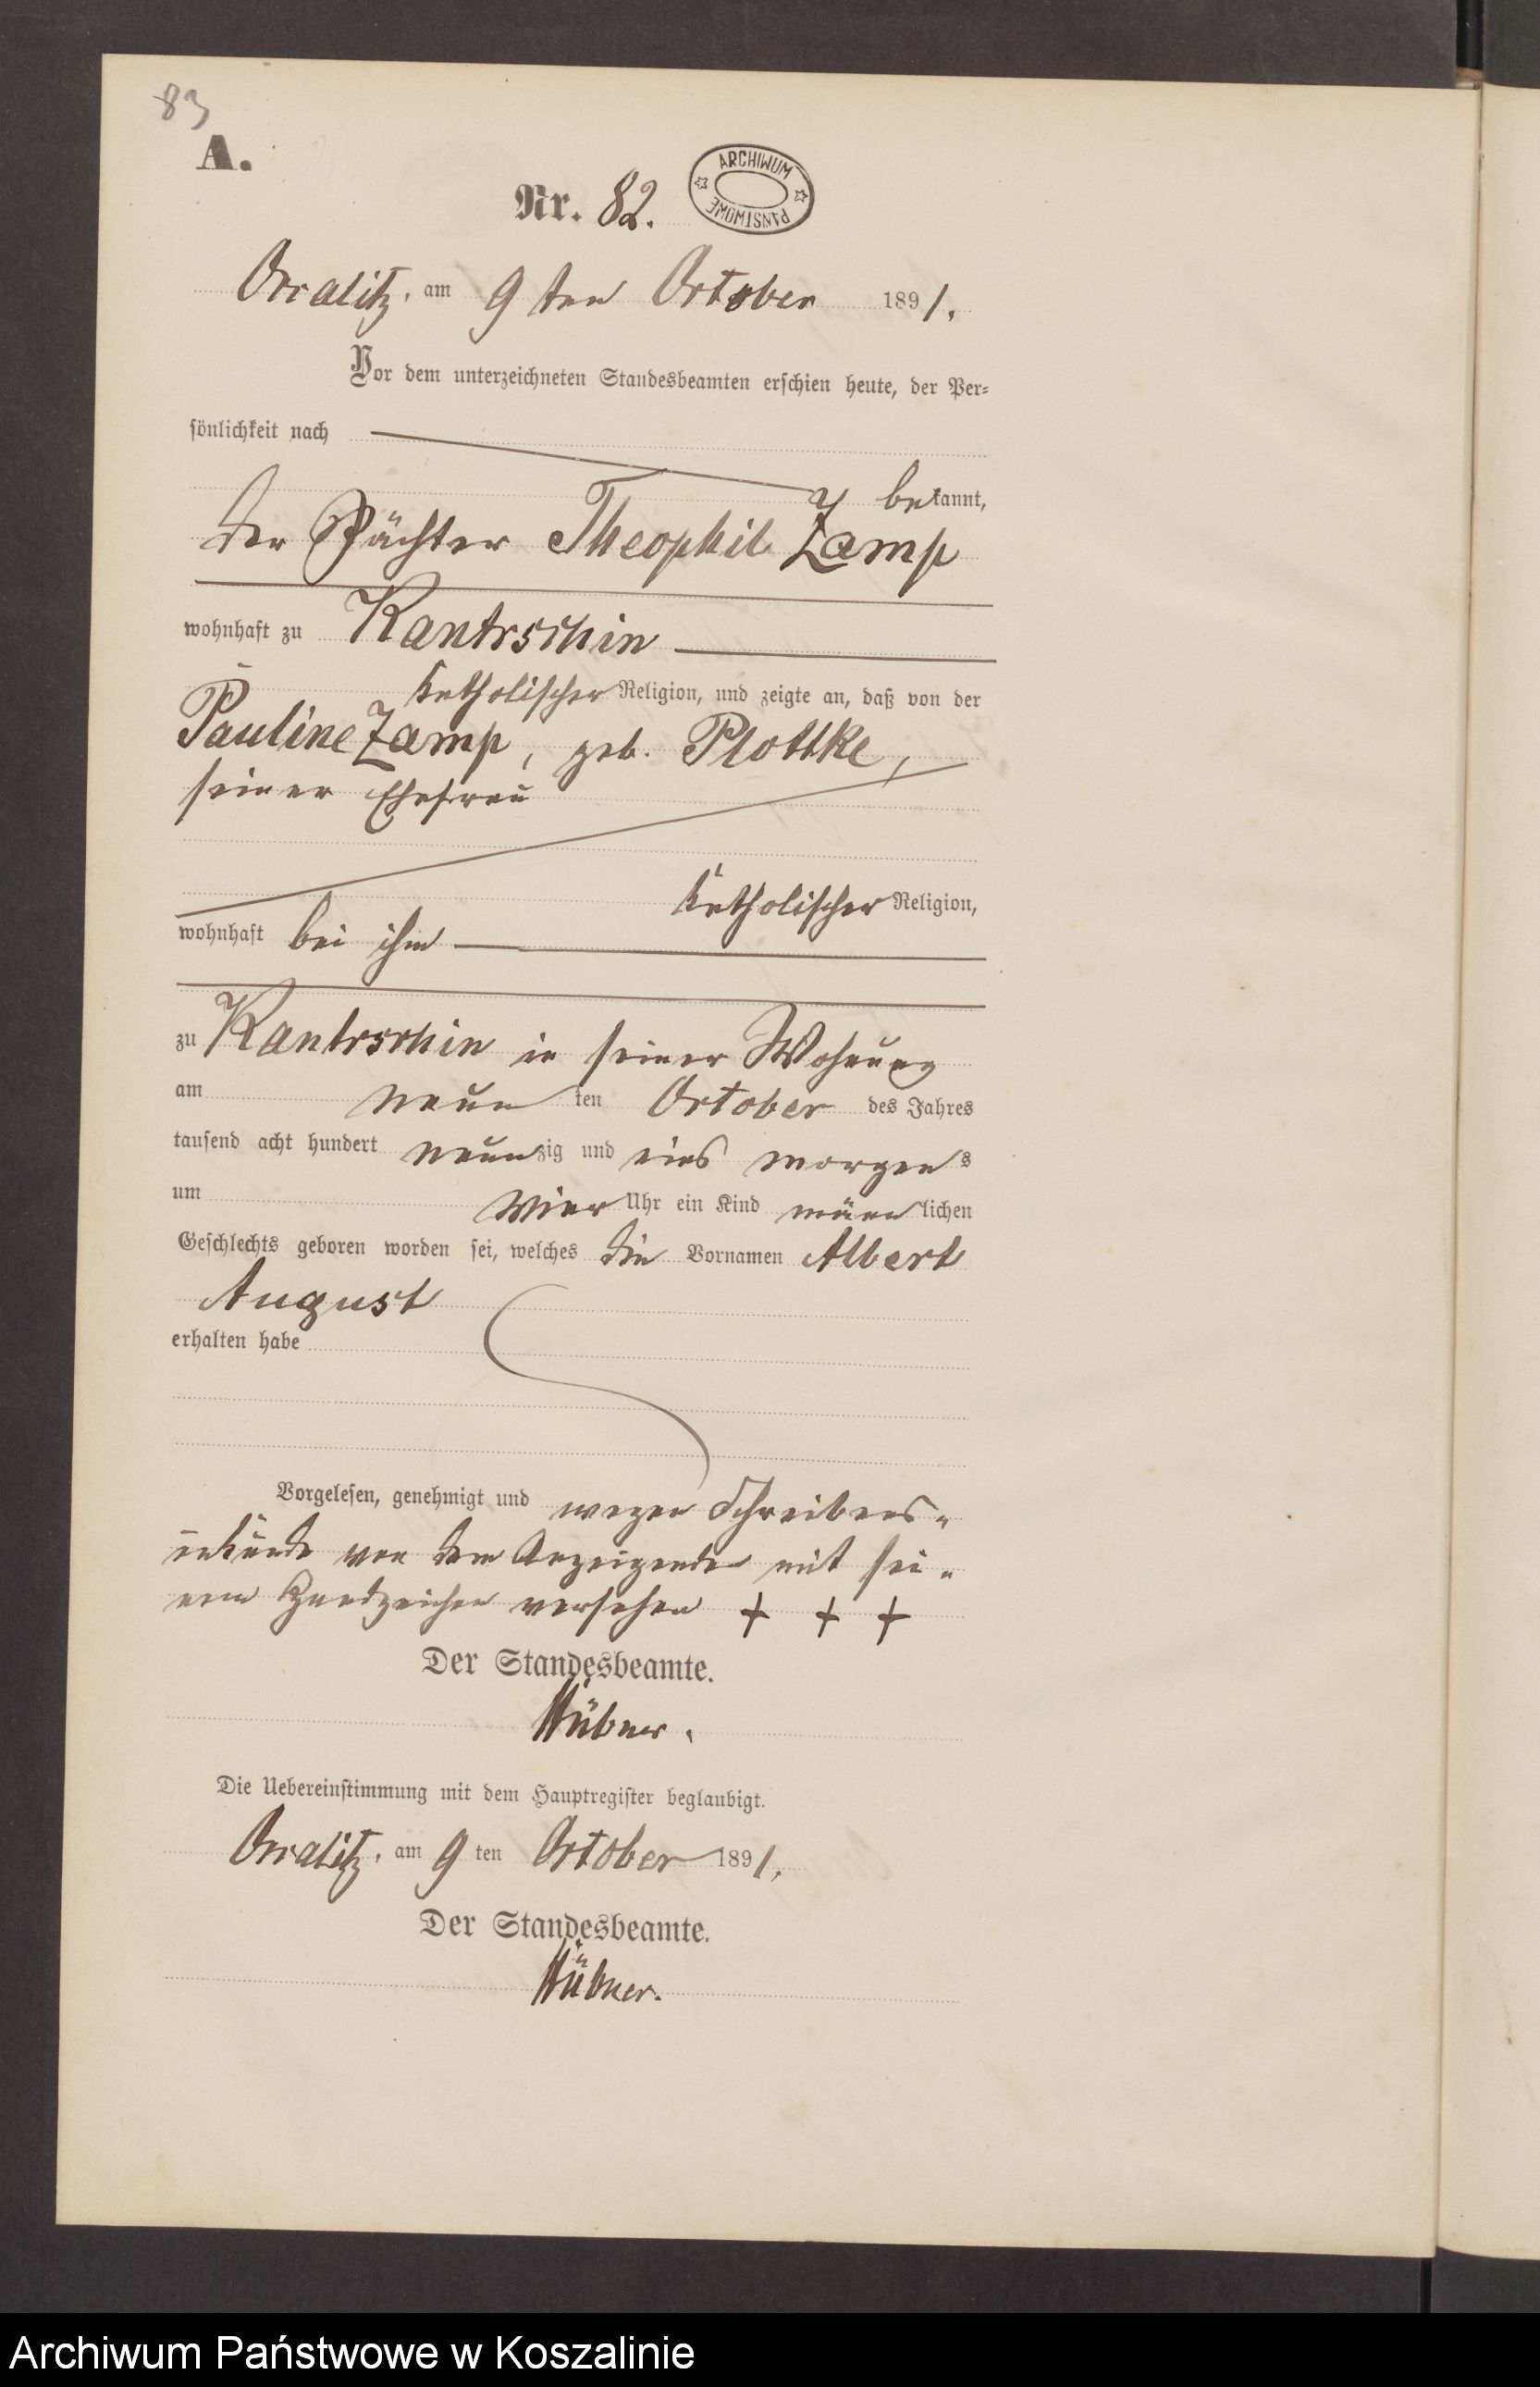 83
A.
Nr. 82.
ARCHIWUM PAŃSTWOWE
Occalitz, am 9 ten October 1891.
Vor dem unterzeichneten Standesbeamten erschien heute, der Per=
sönlichkeit nach
bekannt,
der Pächter Theophil Zamp
wohnhaft zu Kantrschin
katholischer Religion, und zeigte an, daß von der
Pauline Zamp, geb. Plottke,
seiner Ehefrau
katholischer Religion,
wohnhaft bei ihm
zu Kantrschin in seiner Wohnung
am neun ten October des Jahres
tausend acht hundert neunzig und eins morgens
um vier Uhr ein Kind männlichen
Geschlechts geboren worden sei, welches die Vornamen Albert
August
erhalten habe
Vorgelesen, genehmigt und wegen Schreibens-
unkunde von dem Anzeigenden mit sei-
nem Handzeichen versehen + + +
Der Standesbeamte.
Hübner.
Die Uebereinstimmung mit dem Hauptregister beglaubigt.
Occalitz, am 9 ten October 1891.
Der Standesbeamte.
Hübner.
Archiwum Państwowe w Koszalinie